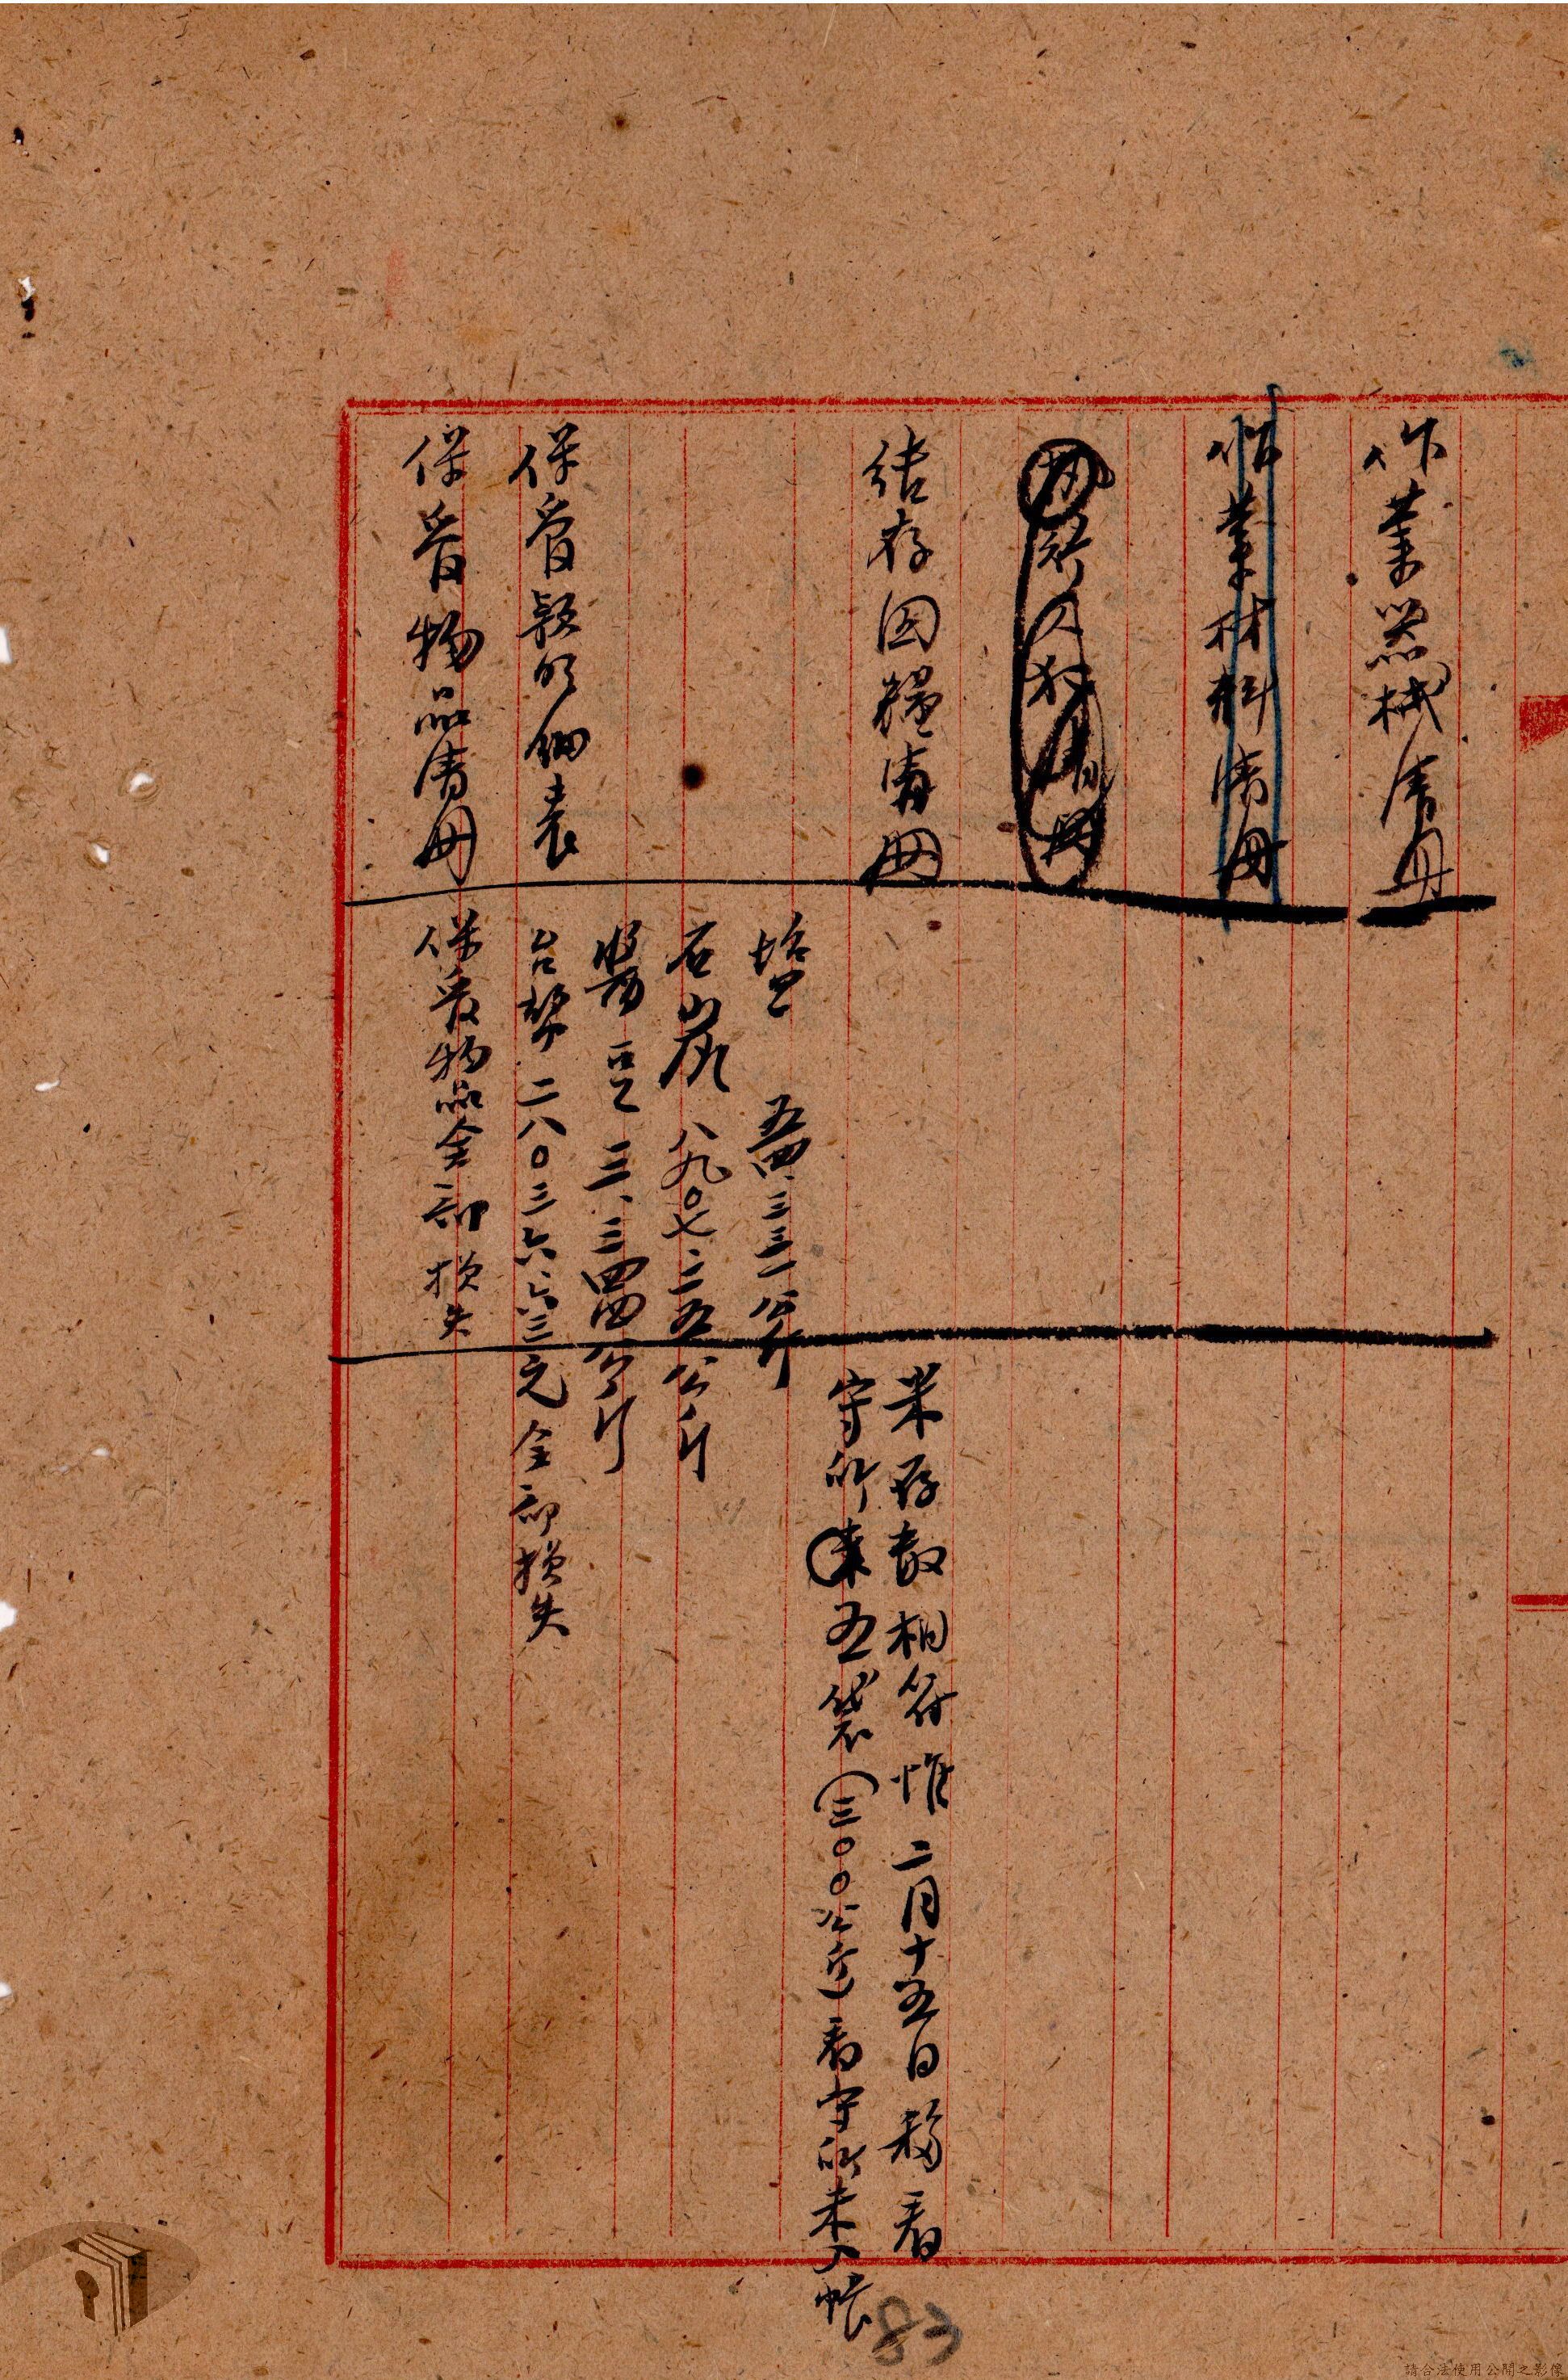 作業器械清冊
作業材料清冊
結存囚糧清冊
米存數相符惟二月十五日移看
守所米五袋(三〇〇公斤)看守所未入帳
塩 五四.三三一公斤
石炭 八九〇七.二五公斤
醬豆 三.三四四公斤
保管款明細表
台幣二八〇三六.六三元全部損失
保管物品清冊
保管物品全部損失
83
請合法使用公開之影像